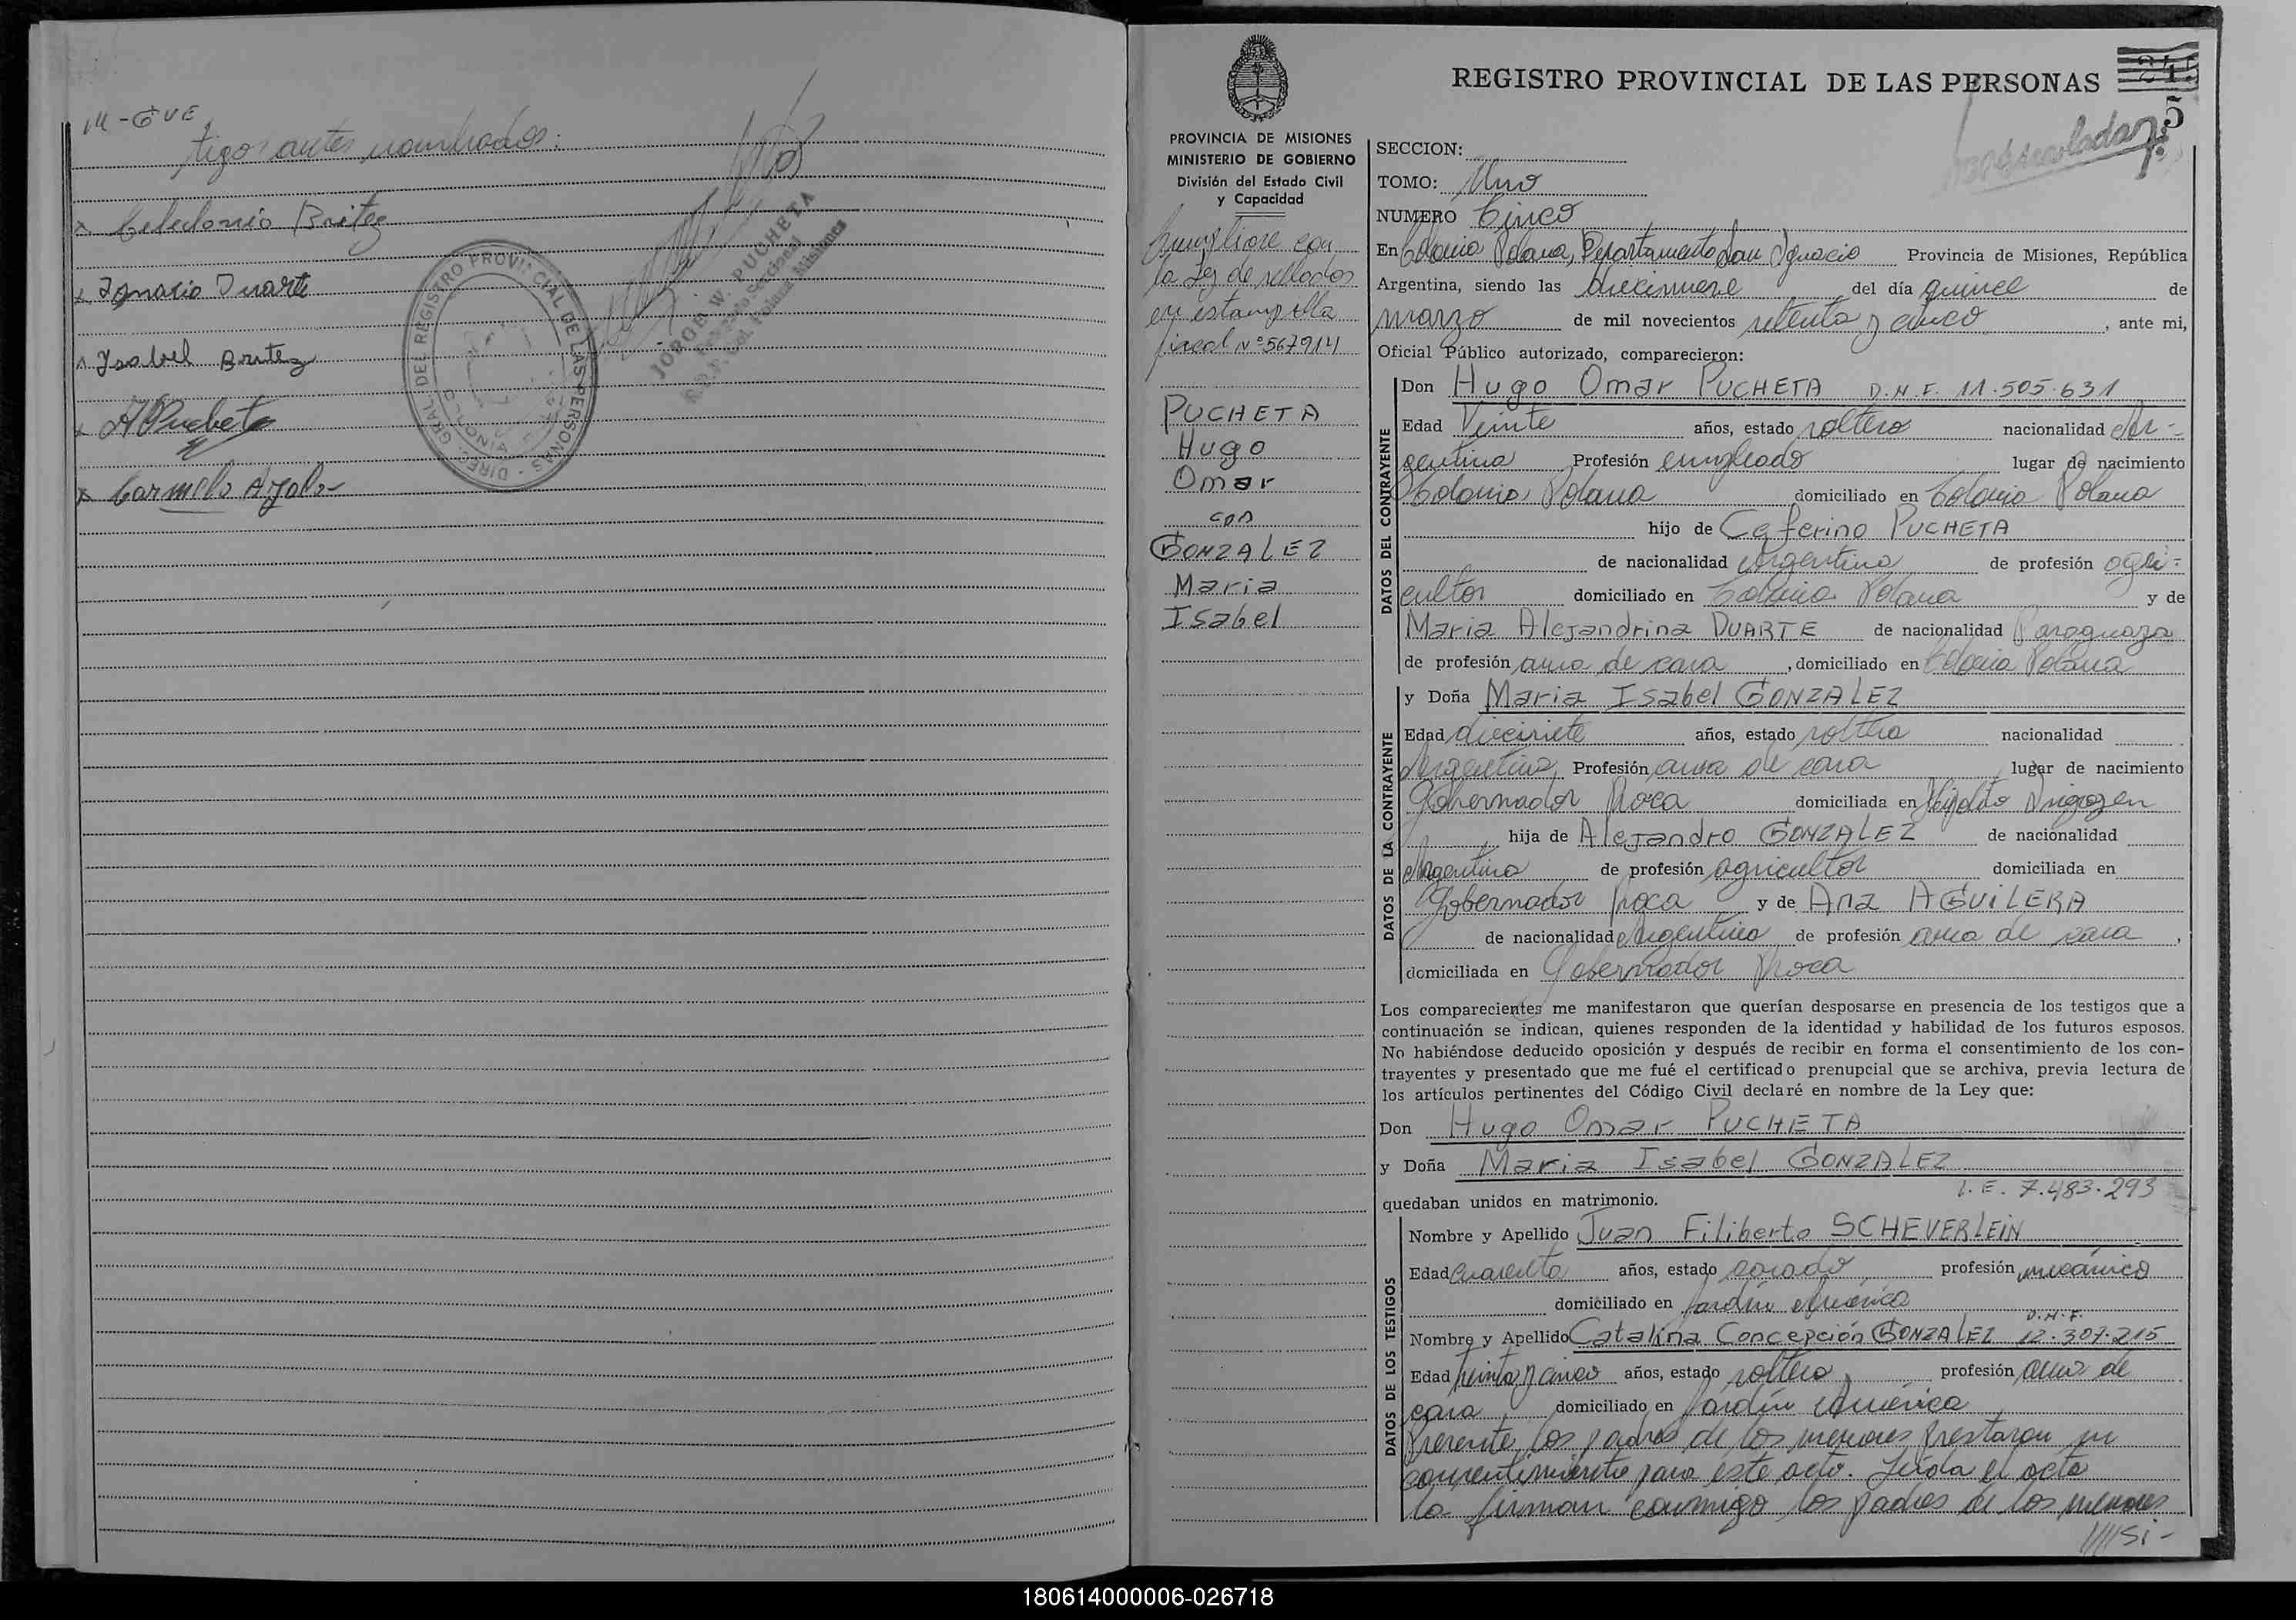 M - GUE
tigos antes nombrados:
x Celedonio Britez
x Ignacio Duarte
x Isabel Britez
x APucheta
x Carmelo Ayala
DIREC. GRAL. DEL REGISTRO PROVINCIAL DE LAS PERSONAS
JORGE W. PUCHETA
REGISTRO PROVINCIAL DE LAS PERSONAS
245
5
PROVINCIA DE MISIONES
MINISTERIO DE GOBIERNO
División del Estado Civil
y Capacidad
Cumpliose con
la Ley de sellados
en estampilla
fiscal Nº 567914
PUCHETA
Hugo
Omar
con
GONZALEZ
Maria
Isabel
SECCION:
TOMO: Uno
NUMERO Cinco
En Colonia Polana, Departamento San Ignacio Provincia de Misiones, República
Argentina, siendo las diecinueve del día quince de
marzo de mil novecientos setenta y cinco, ante mi,
Oficial Público autorizado, comparecieron:
DATOS DEL CONTRAYENTE
Don Hugo Omar PUCHETA D.N.I. 11.505.631
Edad Veinte años, estado soltero nacionalidad Ar-
gentina Profesión empleado lugar de nacimiento
Colonia Polana domiciliado en Colonia Polana
hijo de Ceferino PUCHETA
de nacionalidad Argentina de profesión agri-
cultor domiciliado en Colonia Polana y de
Maria Alejandrina DUARTE de nacionalidad Paraguaya
de profesión ama de casa, domiciliado en Colonia Polana
DATOS DE LA CONTRAYENTE
y Doña Maria Isabel GONZALEZ
Edad diecisiete años, estado soltera nacionalidad
Argentina Profesión ama de casa lugar de nacimiento
Gobernador Roca domiciliada en Hipolito Irigoyen
hija de Alejandro GONZALEZ de nacionalidad
Argentina de profesión agricultor domiciliada en
Gobernador Roca y de Ana AGUILERA
de nacionalidad Argentina de profesión ama de casa,
domiciliada en Gobernador Roca
Los comparecientes me manifestaron que querían desposarse en presencia de los testigos que a
continuación se indican, quienes responden de la identidad y habilidad de los futuros esposos.
No habiéndose deducido oposición y después de recibir en forma el consentimiento de los con-
trayentes y presentado que me fué el certificado prenupcial que se archiva, previa lectura de
los artículos pertinentes del Código Civil declaré en nombre de la Ley que:
Don Hugo Omar PUCHETA
y Doña Maria Isabel GONZALEZ
quedaban unidos en matrimonio.
L.E. 7.483.293
DATOS DE LOS TESTIGOS
Nombre y Apellido Juan Filiberto SCHEVERLEIN
Edad Cuarenta años, estado casado profesión mecánico
domiciliado en Jardin América
D.N.I.
Nombre y Apellido Catalina Concepción GONZALEZ 12.307.215
Edad treinta y cinco años, estado soltera profesión ama de
casa domiciliado en Jardín América
Presente los padres de los menores prestaron su
consentimiento para este acto. Leída el acta
la firman conmigo los padres de los menores
////SI-
180614000006-026718